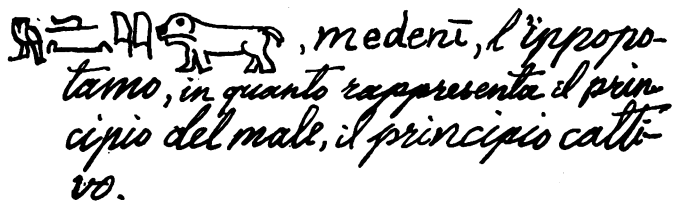 , medenī, l'ippopo-
tamo, in quanto rappresenta il prin-
cipio del male, il principio catti-
vo.